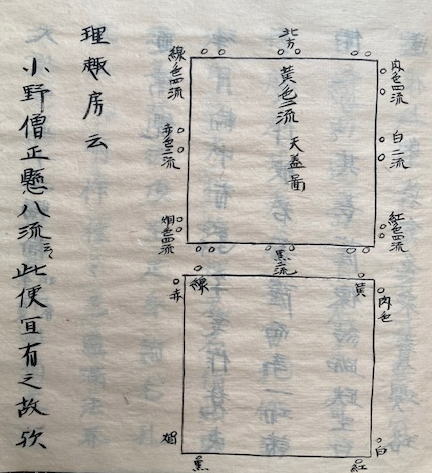 北方
黄色二流
天蓋圖
肉色四流
白二流
紅色四流
黒二流
烟色四流
赤色二流
緑色四流
黄
肉色
白
紅
黒
烟
赤
緑
理趣房云
小野僧正懸八流云々此便宜有之故欤